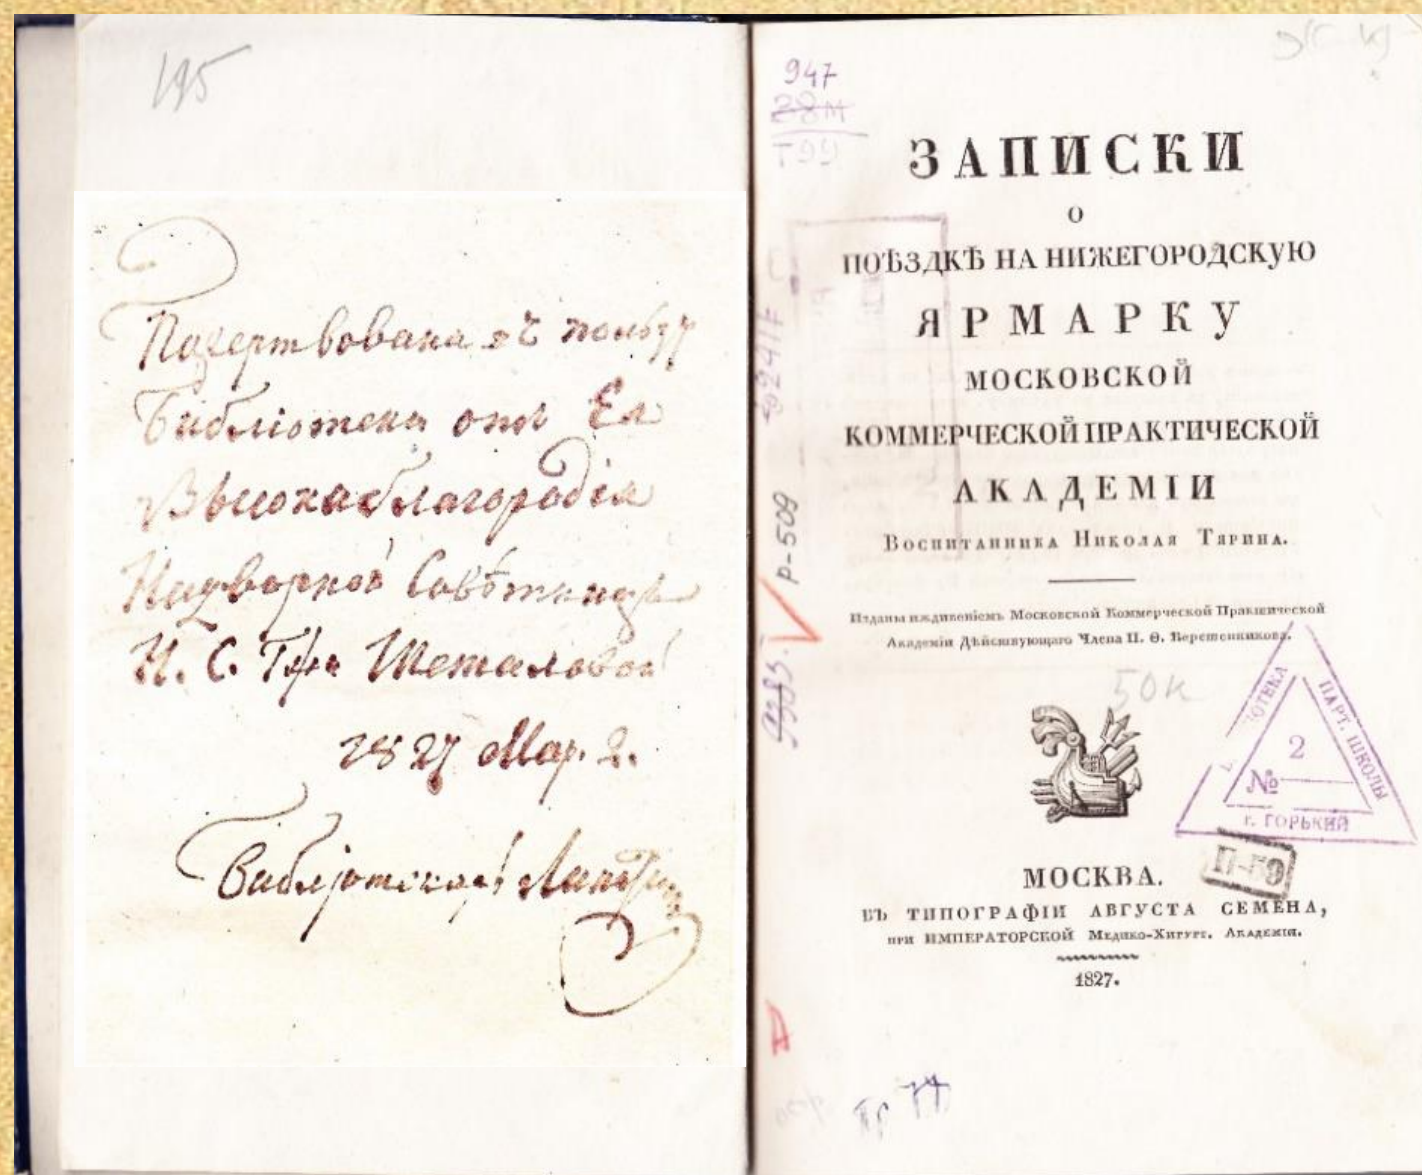 195
Пожертвована въ пользу
Библіотеки отъ Ея
Высокаблагородія
Надворной Совѣтницы
Н. С. Шеталовой
1827 Мар. 2.
Библіотекарь
947
28М
Т99
ЗАПИСКИ
О
ПОѢЗДКѢ НА НИЖЕГОРОДСКУЮ
ЯРМАРКУ
МОСКОВСКОЙ
КОММЕРЧЕСКОЙ ПРАКТИЧЕСКОЙ
АКАДЕМІИ
Воспитанника Николая Тярина.
Изданы иждивеніемъ Московской Коммерческой Практической
Академіи Дѣйствующаго Члена П. Ѳ. Верстенникова.
р-509
9385.
50к
ПАРТ. ШКОЛЫ
2
№
г. ГОРЬКИЙ
П-59
МОСКВА.
ВЪ ТИПОГРАФІИ АВГУСТА СЕМЕНА,
при ИМПЕРАТОРСКОЙ Медико-Хирург. Академіи.
1827.